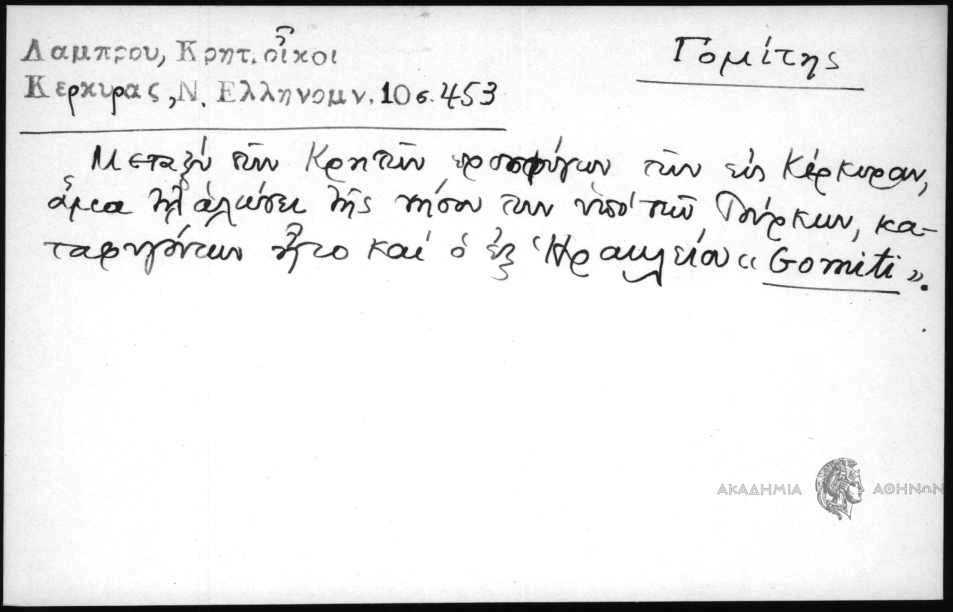 Λαμπρου, Κρητ. οἶκοι
Κερκυρας, Ν. Ελληνομν. 10 σ. 453
Γομίτης
Μεταξὺ τῶν Κρητῶν προσφύγων τῶν εἰς Κέρκυραν,
ἅμα τῇ ἁλώσει τῆς νήσου των ὑπὸ τῶν Τούρκων, κα-
ταφυγόντων ἦτο καὶ ὁ ἐξ Ἡρακλείου « Gomiti ».
ΑΚΑΔΗΜΙΑ ΑΘΗΝΩΝ